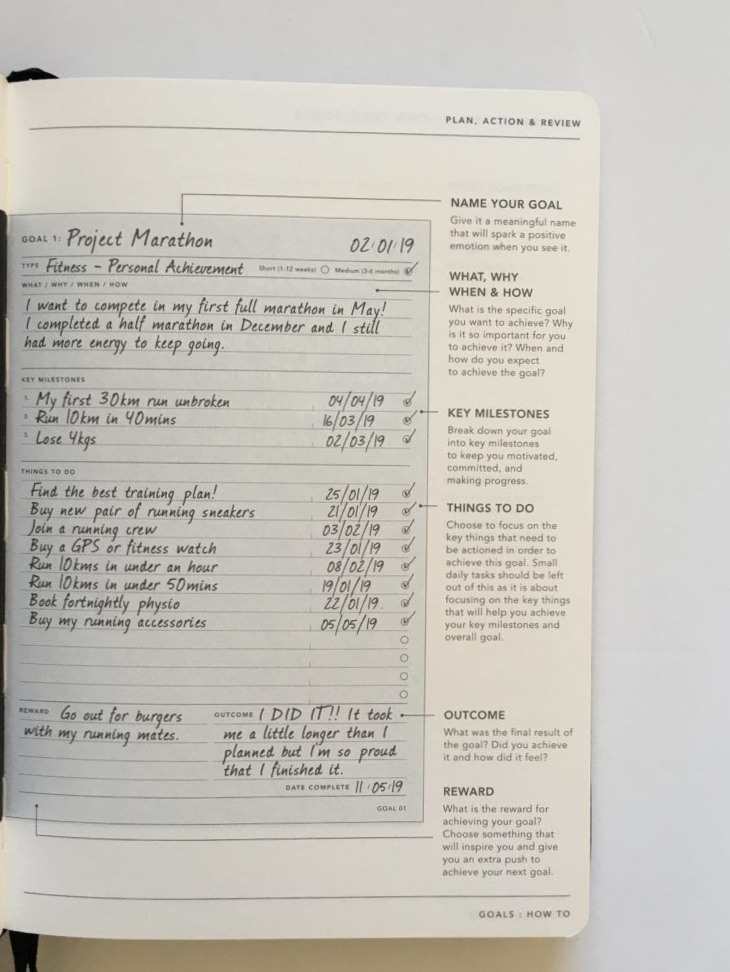 PLAN, ACTION & REVIEW
GOAL 1: Project Marathon 02/01/19
TYPE Fitness - Personal Achievement Short (1-12 weeks) Medium (3-6 months)
WHAT / WHY / WHEN / HOW
I want to compete in my first full marathon in May!
I completed a half marathon in December and I still
had more energy to keep going.
KEY MILESTONES
1. My first 30km run unbroken 04/04/19
2. Run 10km in 40mins 16/03/19
3. Lose 4kgs 02/03/19
THINGS TO DO
Find the best training plan! 25/01/19
Buy new pair of running sneakers 21/01/19
Join a running crew 03/02/19
Buy a GPS or fitness watch 23/01/19
Run 10kms in under an hour 08/02/19
Run 10kms in under 50mins 19/01/19
Book fortnightly physio 22/01/19
Buy my running accessories 05/05/19
REWARD Go out for burgers
with my running mates.
OUTCOME I DID IT!! It took
me a little longer than I
planned but I'm so proud
that I finished it.
DATE COMPLETE 11/05/19
GOAL 01
NAME YOUR GOAL
Give it a meaningful name
that will spark a positive
emotion when you see it.
WHAT, WHY
WHEN & HOW
What is the specific goal
you want to achieve? Why
is it so important for you
to achieve it? When and
how do you expect
to achieve the goal?
KEY MILESTONES
Break down your goal
into key milestones
to keep you motivated,
committed, and
making progress.
THINGS TO DO
Choose to focus on the
key things that need to
be actioned in order to
achieve this goal. Small
daily tasks should be left
out of this as it is about
focusing on the key things
that will help you achieve
your key milestones and
overall goal.
OUTCOME
What was the final result of
the goal? Did you achieve
it and how did it feel?
REWARD
What is the reward for
achieving your goal?
Choose something that
will inspire you and give
you an extra push to
achieve your next goal.
GOALS : HOW TO